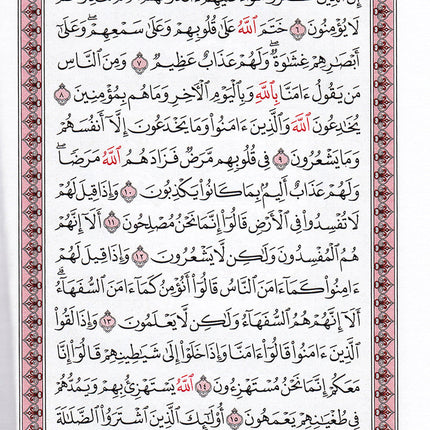 لَا يُؤْمِنُونَ ٦ خَتَمَ ٱللَّهُ عَلَىٰ قُلُوبِهِمْ وَعَلَىٰ سَمْعِهِمْ ۖ وَعَلَىٰ
أَبْصَٰرِهِمْ غِشَٰوَةٌ ۖ وَلَهُمْ عَذَابٌ عَظِيمٌ ٧ وَمِنَ ٱلنَّاسِ
مَن يَقُولُ ءَامَنَّا بِٱللَّهِ وَبِٱلْيَوْمِ ٱلْءَاخِرِ وَمَا هُم بِمُؤْمِنِينَ ٨
يُخَٰدِعُونَ ٱللَّهَ وَٱلَّذِينَ ءَامَنُوا۟ وَمَا يَخْدَعُونَ إِلَّآ أَنفُسَهُمْ
وَمَا يَشْعُرُونَ ٩ فِى قُلُوبِهِم مَّرَضٌ فَزَادَهُمُ ٱللَّهُ مَرَضًا ۖ
وَلَهُمْ عَذَابٌ أَلِيمٌۢ بِمَا كَانُوا۟ يَكْذِبُونَ ١٠ وَإِذَا قِيلَ لَهُمْ
لَا تُفْسِدُوا۟ فِى ٱلْأَرْضِ قَالُوٓا۟ إِنَّمَا نَحْنُ مُصْلِحُونَ ١١ أَلَآ إِنَّهُمْ
هُمُ ٱلْمُفْسِدُونَ وَلَٰكِن لَّا يَشْعُرُونَ ١٢ وَإِذَا قِيلَ لَهُمْ
ءَامِنُوا۟ كَمَآ ءَامَنَ ٱلنَّاسُ قَالُوٓا۟ أَنُؤْمِنُ كَمَآ ءَامَنَ ٱلسُّفَهَآءُ ۗ
أَلَآ إِنَّهُمْ هُمُ ٱلسُّفَهَآءُ وَلَٰكِن لَّا يَعْلَمُونَ ١٣ وَإِذَا لَقُوا۟
ٱلَّذِينَ ءَامَنُوا۟ قَالُوٓا۟ ءَامَنَّا وَإِذَا خَلَوْا۟ إِلَىٰ شَيَٰطِينِهِمْ قَالُوٓا۟ إِنَّا
مَعَكُمْ إِنَّمَا نَحْنُ مُسْتَهْزِءُونَ ١٤ ٱللَّهُ يَسْتَهْزِئُ بِهِمْ وَيَمُدُّهُمْ
فِى طُغْيَٰنِهِمْ يَعْمَهُونَ ١٥ أُو۟لَٰٓئِكَ ٱلَّذِينَ ٱشْتَرَوُا۟ ٱلضَّلَٰلَةَ